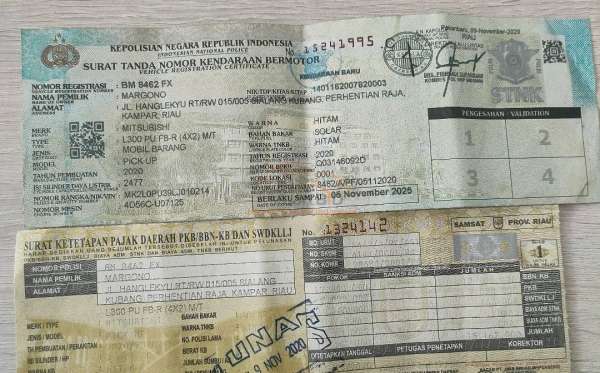 KEPOLISIAN NEGARA REPUBLIK INDONESIA
INDONESIAN NATIONAL POLICE
No. 15241995
SURAT TANDA NOMOR KENDARAAN BERMOTOR
VEHICLE REGISTRATION CERTIFICATE
Pekanbaru, 09-November-2020
RIAU
KENDARAAN BARU
STNK
NOMOR REGISTRASI : BM 8462 FX
NAMA PEMILIK : MARGONO
NIK/TDP/KITAS/KITAP : 1401182007820003
ALAMAT : JL HANGLEKYU RT/RW 015/005 SIALANG KUBANG, PERHENTIAN RAJA,
KAMPAR, RIAU
MERK : MITSUBISHI
TYPE : L300 PU FB-R (4X2) M/T
JENIS : MOBIL BARANG
MODEL : PICK-UP
TAHUN PEMBUATAN : 2020
ISI SILINDER/DAYA LISTRIK : 2477
NOMOR RANGKA/NIK/VIN : MK2L0PU39LJ010214
NOMOR MESIN : 4D56C-U07125
WARNA : HITAM
BAHAN BAKAR : SOLAR
WARNA TNKB : HITAM
TAHUN REGISTRASI : 2020
NOMOR BPKB : Q03146092D
KODE LOKASI : 0001
NO URUT PENDAFTARAN : 8462/APF/05112020
BERLAKU SAMPAI : 05 November 2025
PENGESAHAN - VALIDATION
1 2
3 4
SURAT KETETAPAN PAJAK DAERAH PKB/BBN-KB DAN SWDKLLJ
No. 1324142
SAMSAT
PROV. RIAU
NOMOR POLISI BM 8462 FX
NAMA PEMILIK MARGONO
ALAMAT JL HANGLEKYU RT/RW.015/005 SIALANG
KUBANG, PERHENTIAN RAJA, KAMPAR, RIAU
MERK / TYPE L300 PU FB-R (4X2) M/T
JENIS / MODEL
TH PEMBUATAN / PERAKITAN
ISI SILINDER / HP
BAHAN BAKAR
WARNA TNKB
NO. POLISI LAMA
BERAT KB
NO. URUT
POKOK
SANKSI ADM
JUMLAH
BBN. KB
PKB
SWDKLLJ
BIAYA ADM STNK
BIAYA ADM TNKB
JUMLAH
LUNAS
9 NOV 2020
DITETAPKAN TANGGAL
PETUGAS PENETAPAN
KOREKTOR